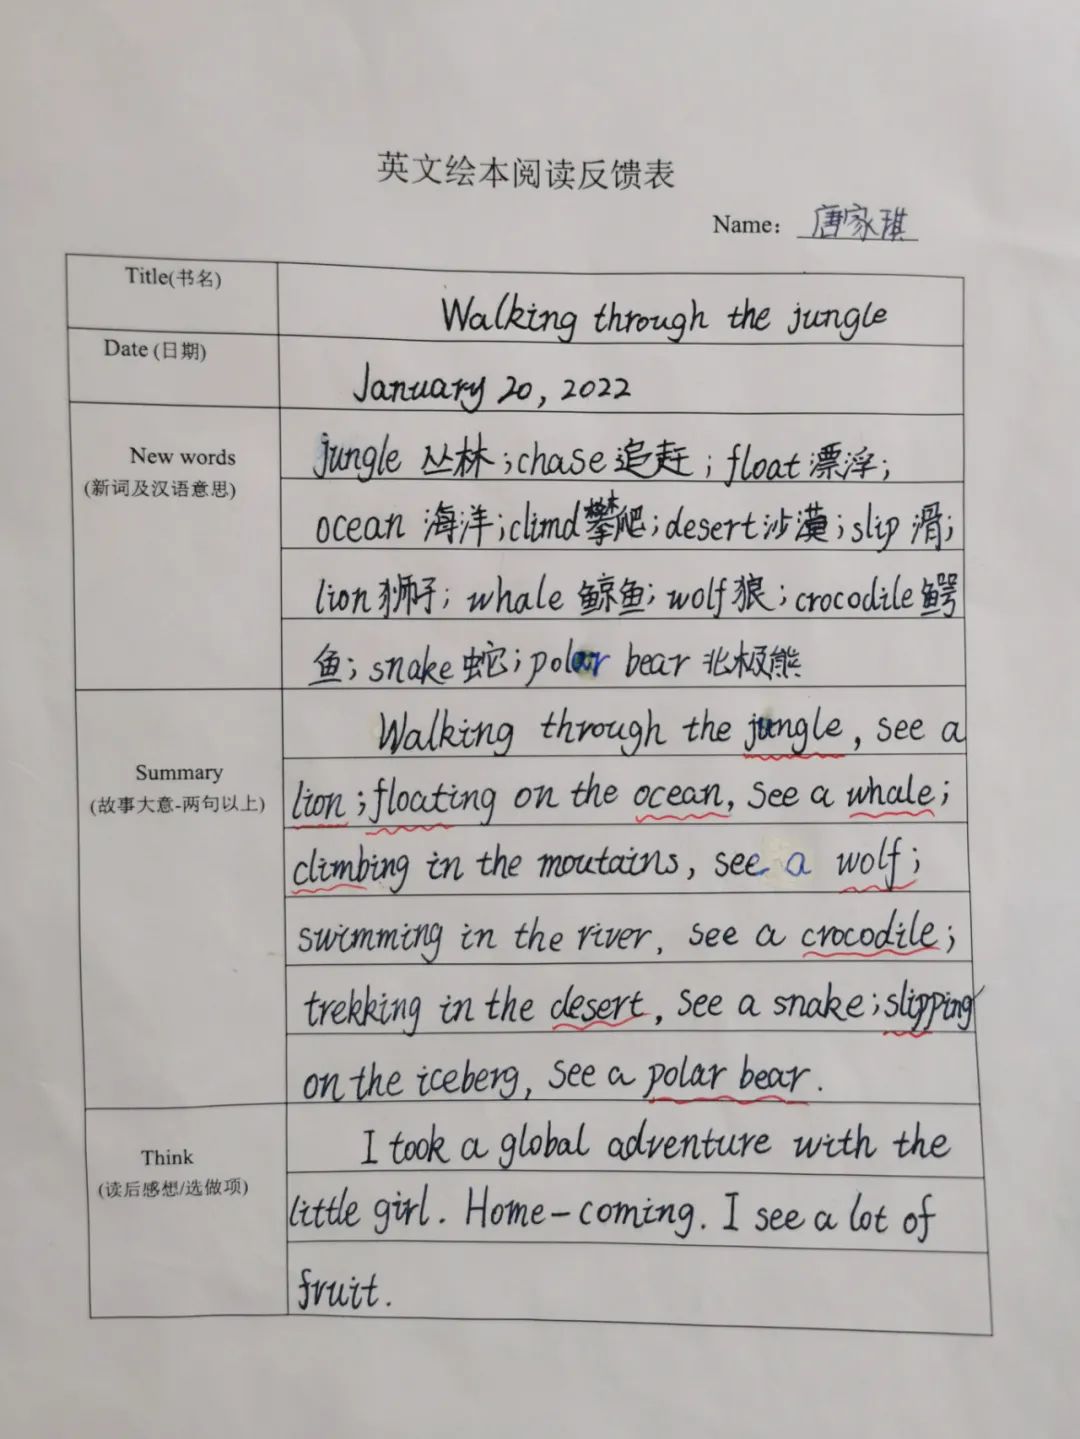 英文绘本阅读反馈表
Name: 唐家琪
Title(书名)
Walking through the jungle
Date (日期)
January 20, 2022
New words
(新词及汉语意思)
jungle 丛林;chase 追赶;float 漂浮;
ocean 海洋;climd 攀爬;desert 沙漠;slip 滑;
lion 狮子;whale 鲸鱼;wolf 狼;crocodile 鳄
鱼;snake 蛇;polar bear 北极熊
Summary
(故事大意-两句以上)
Walking through the jungle, see a
lion;floating on the ocean, see a whale;
climbing in the moutains, see a wolf;
swimming in the river, see a crocodile;
trekking in the desert, see a snake;slipping
on the iceberg, see a polar bear.
Think
(读后感想/选做项)
I took a global adventure with the
little girl. Home-coming. I see a lot of
fruit.